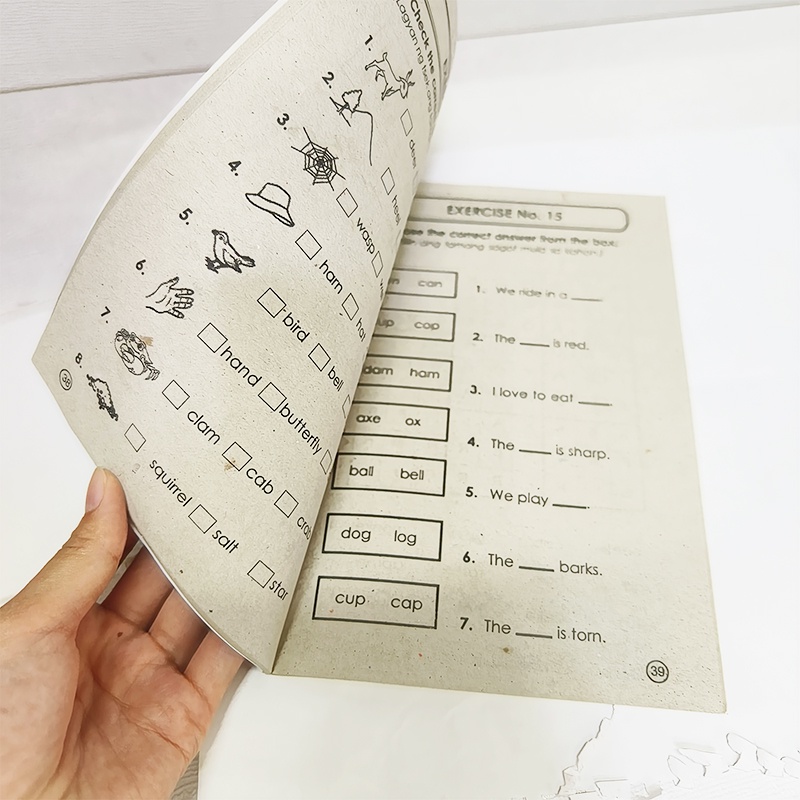 Check the
Lagyan ng tsek ang
1.
2.
3.
wasp
4.
ham
hat
5.
bird
bell
6.
hand
butterfly
7.
clam
cab
crab
8.
squirrel
salt
star
38
EXERCISE No. 15
the correct answer from the box.
ang tamang sagot mula sa kahon.)
can
1. We ride in a ____.
cop
2. The ____ is red.
ham
3. I love to eat ____.
axe ox
4. The ____ is sharp.
ball bell
5. We play ____.
dog log
6. The ____ barks.
cup cap
7. The ____ is torn.
39